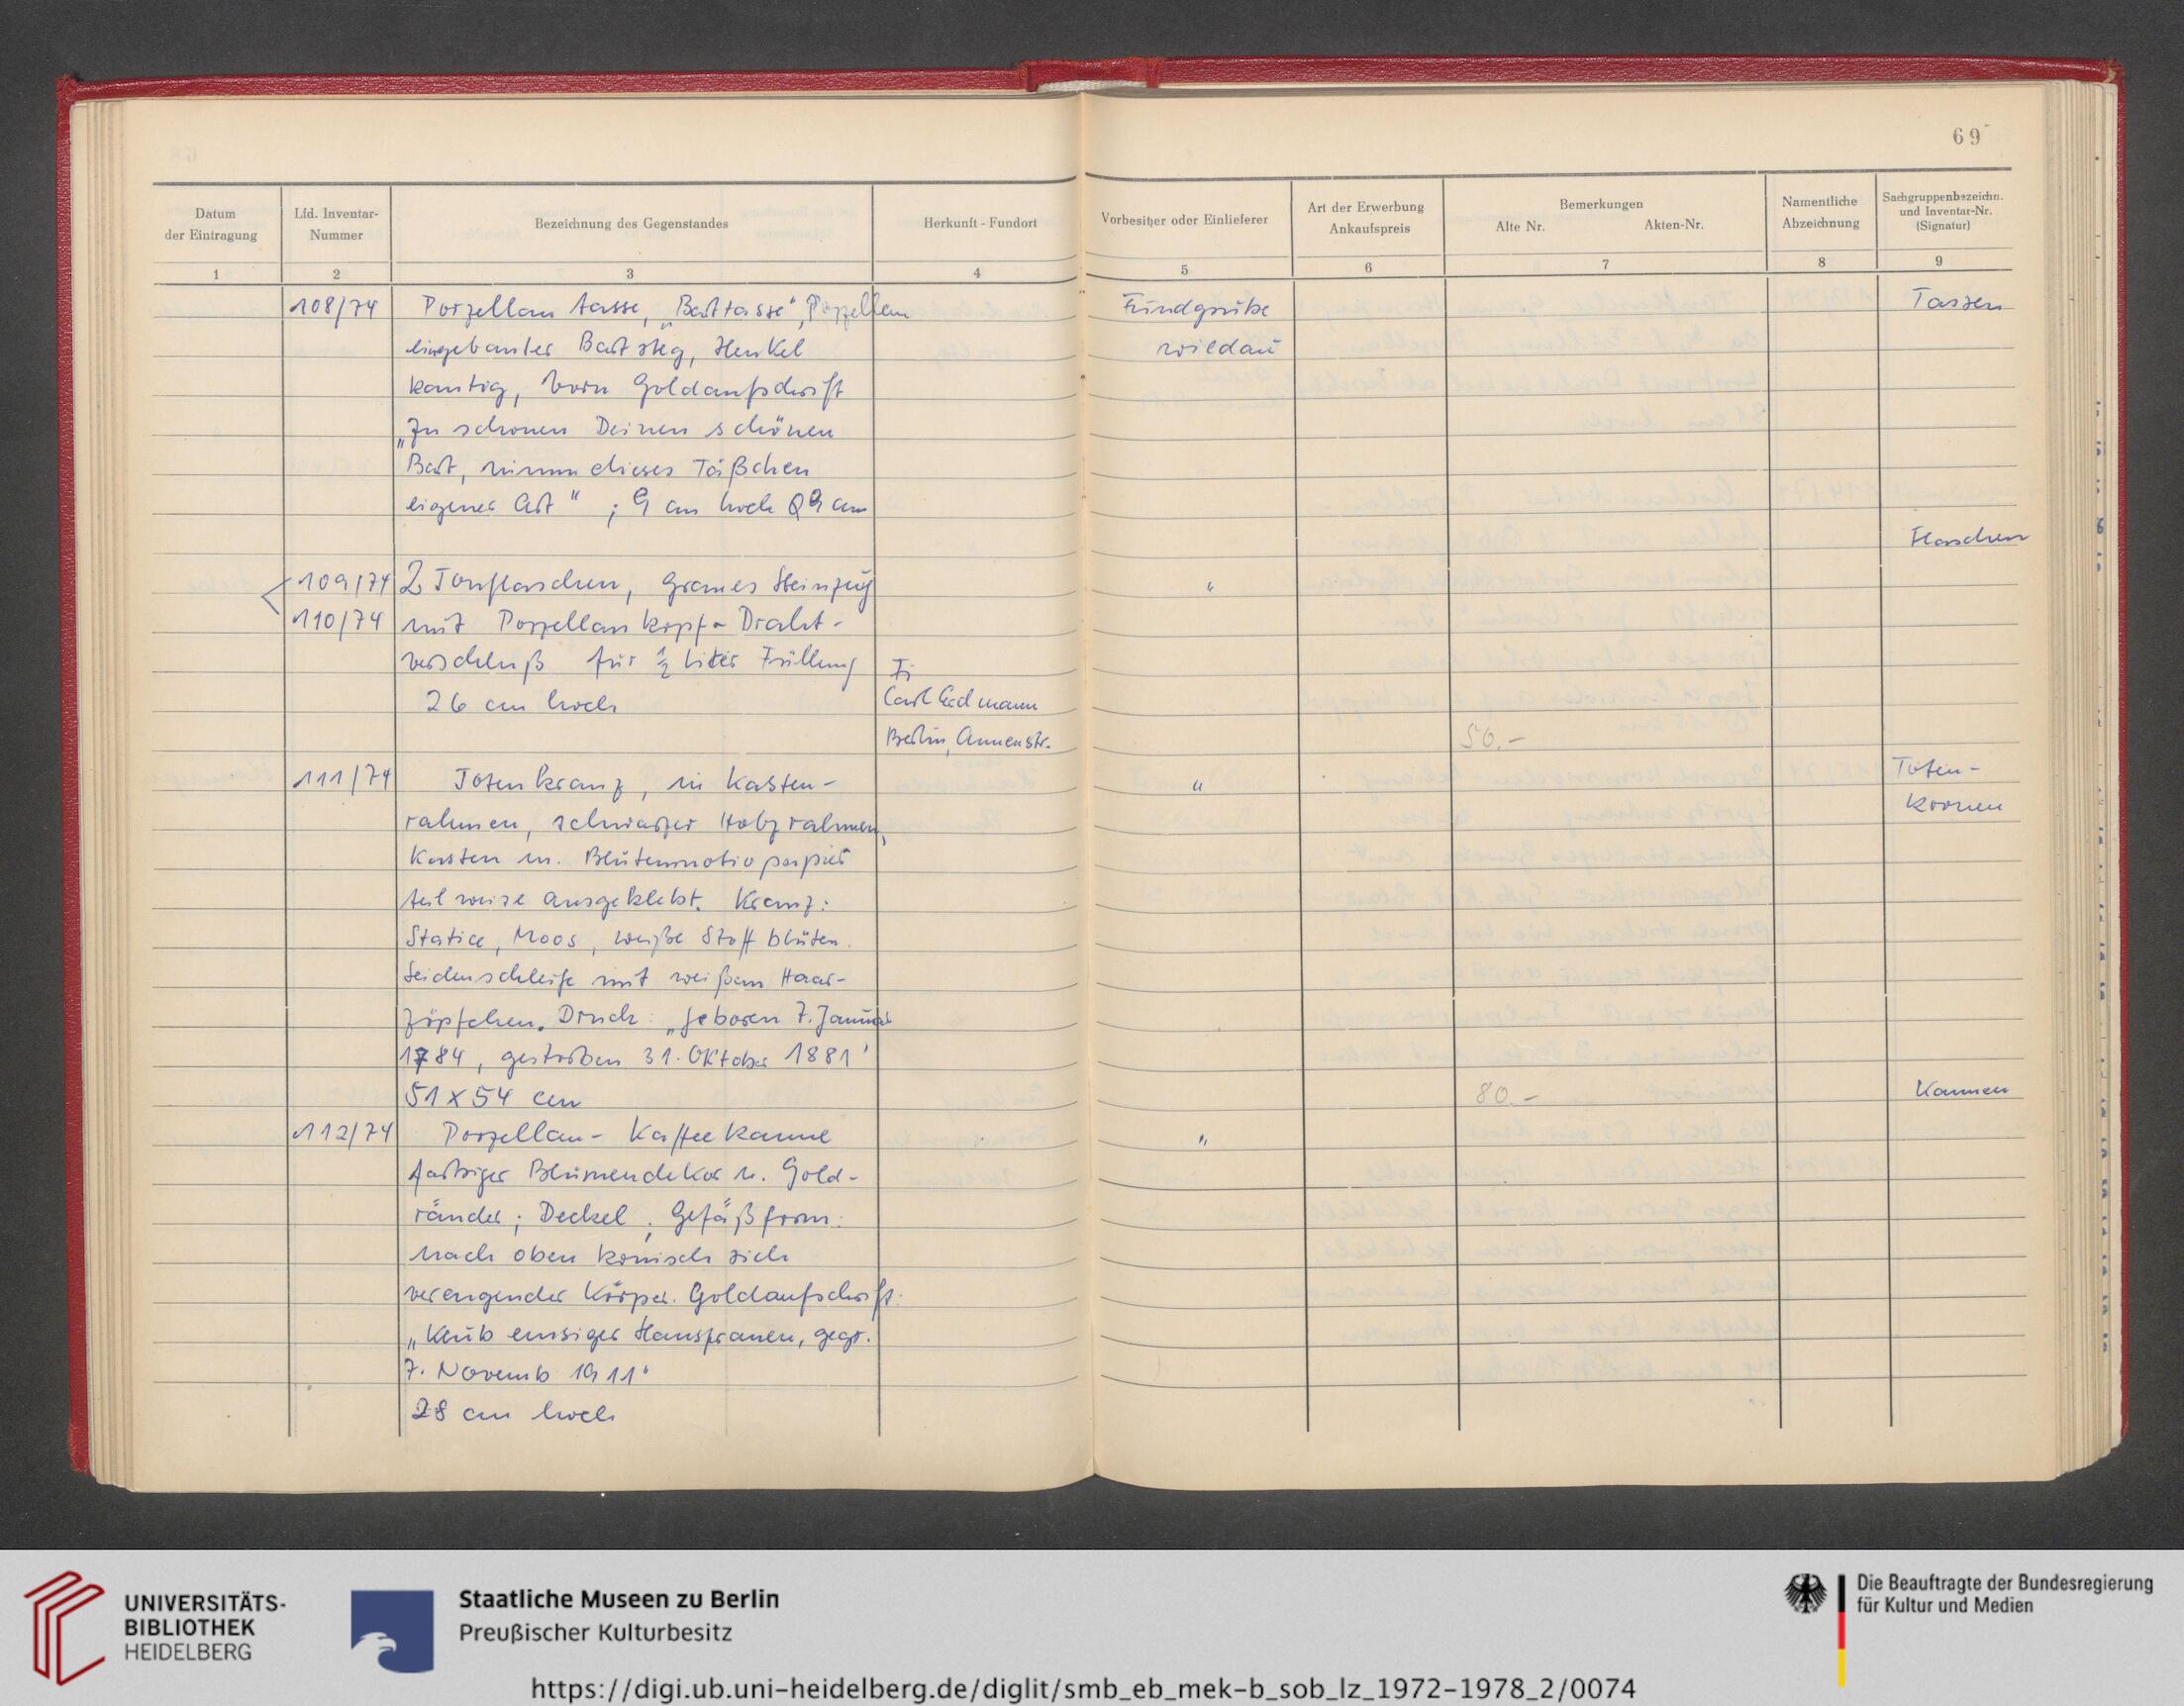 69
Datum
der Eintragung
Lfd. Inventar-
Nummer
Bezeichnung des Gegenstandes
Herkunft - Fundort
Vorbesitzer oder Einlieferer
Art der Erwerbung
Ankaufspreis
Bemerkungen
Alte Nr. Akten-Nr.
Namentliche
Abzeichnung
Sachgruppenbezeichn.
und Inventar-Nr.
(Signatur)
1 2 3 4 5 6 7 8 9
108/74 Porzellan tasse, „Barttasse", Porzellan Fundgrube Tassen
eingebauter Bartsteg, Henkel Wildau
kantig, vorn Goldaufschrift
„Zu schonen Deinen schönen
Bart, nimm dieses Täßchen
eigener Art" ; 9 cm hoch Q 9 cm
Flaschen
109/74 2 Tonflaschen, graues Steinzeug "
110/74 mit Porzellankopf - Draht-
verschluß für 1/2 Liter Füllung Fi
26 cm hoch Carl Erdmann
Berlin, Annenstr. 50.-
111/74 Totenkranz, in Kasten- " Toten-
rahmen, schwarzer Holzrahmen, kronen
Kasten m. Blütenmotivpapier
teilweise ausgeklebt. Kranz:
Statice, Moos, weiße Stoffblüten.
Seidenschleife mit weißem Haar-
zöpfchen. Druck: „geboren 7. Januar
1784, gestorben 31. Oktober 1881"
51 x 54 cm 80.- Kannen
112/74 Porzellan - Kaffeekanne "
farbiger Blumendekor u. Gold-
ränder; Deckel; Gefäßform:
nach oben konisch sich
verengender Körper. Goldaufschrift:
„Klub emsiger Hausfrauen, gegr.
7. Novemb 1911"
28 cm hoch
UNIVERSITÄTS-
BIBLIOTHEK
HEIDELBERG
Staatliche Museen zu Berlin
Preußischer Kulturbesitz
Die Beauftragte der Bundesregierung
für Kultur und Medien
https://digi.ub.uni-heidelberg.de/diglit/smb_eb_mek-b_sob_lz_1972-1978_2/0074